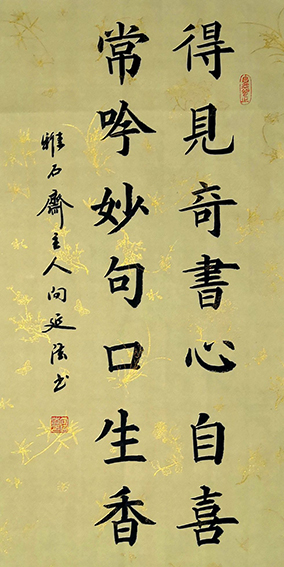 得見奇書心自喜
常吟妙句口生香
雅石齋主人向延法书